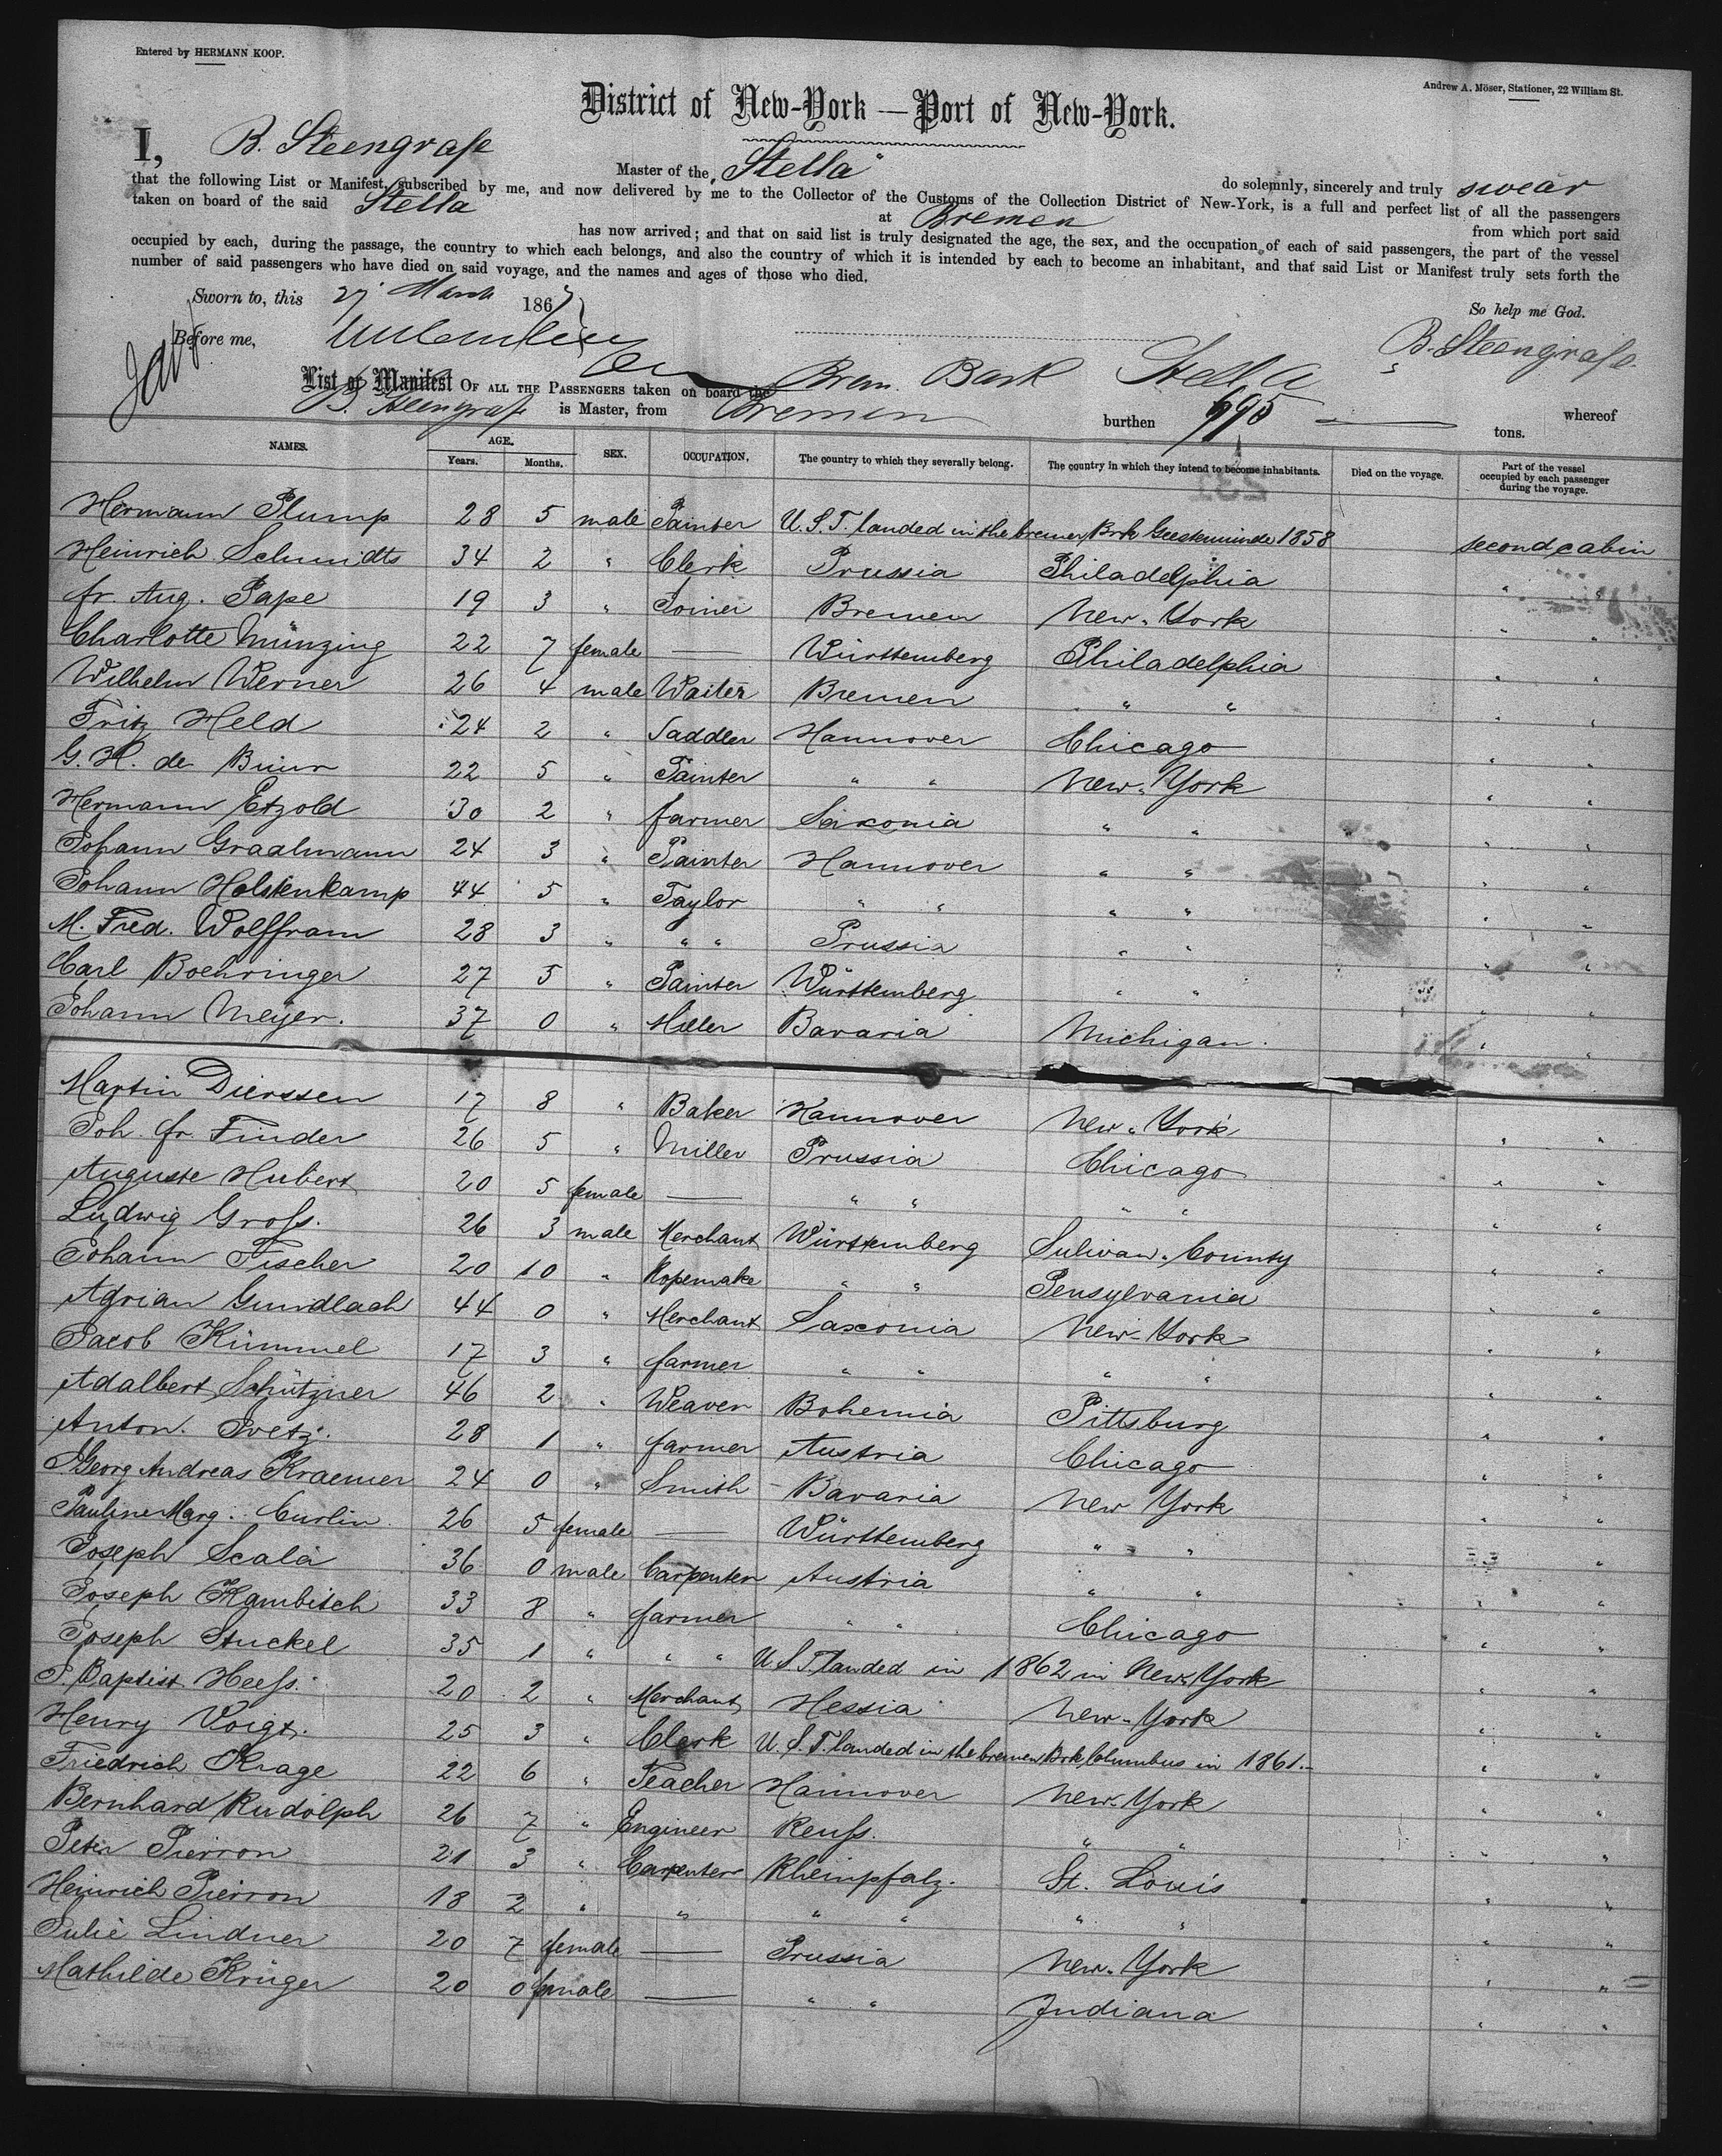 Entered by HERMANN KOOP.
Andrew A. Möser, Stationer, 22 William St.
District of New-York — Port of New-York.
I, B. Steengrafe Master of the „Stella" do solemnly, sincerely and truly swear
that the following List or Manifest, subscribed by me, and now delivered by me to the Collector of the Customs of the Collection District of New-York, is a full and perfect list of all the passengers
taken on board of the said Stella at Bremen from which port said
has now arrived; and that on said list is truly designated the age, the sex, and the occupation of each of said passengers, the part of the vessel
occupied by each, during the passage, the country to which each belongs, and also the country of which it is intended by each to become an inhabitant, and that said List or Manifest truly sets forth the
number of said passengers who have died on said voyage, and the names and ages of those who died.
Sworn to, this 27 March 1867 So help me God.
Before me, B. Steengrafe.
List or Manifest OF ALL THE PASSENGERS taken on board the Brem. Bark Stella whereof
B. Steengrafe is Master, from Bremen burthen 695 tons.
NAMES. AGE. Years. Months. SEX. OCCUPATION. The country to which they severally belong. The country in which they intend to become inhabitants. Died on the voyage. Part of the vessel occupied by each passenger during the voyage.
231
Hermann Plump 28 5 male Painter U.S.T. landed in the bremen Brk Geestemünde 1858 second cabin
Heinrich Schmidts 34 2 " Clerk Prussia Philadelphia " "
fr. Aug. Pape 19 3 " Joiner Bremen New-York " "
Charlotte Münzing 22 7 female — Württemberg Philadelphia " "
Wilhelm Werner 26 4 male Waiter Bremen " " " "
Fritz Held 24 2 " Saddler Hannover Chicago " "
G. H. de Buur 22 5 " Painter " " New-York " "
Hermann Etzold 30 2 " farmer Saxonia " " " "
Johann Graalmann 24 3 " Painter Hannover " " " "
Johann Holstenkamp 44 5 " Taylor " " " " " "
M. Fred. Wolffram 28 3 " " " Prussia " " " "
Carl Boehringer 27 5 " Painter Württemberg " " " "
Johann Meijer. 37 0 " Miller Bavaria Michigan. " "
Martin Dierssen 17 8 " Baker Hannover New-York " "
Joh. fr. Finder 26 5 " Miller Prussia Chicago " "
Auguste Hubert 20 5 female — " " " " " "
Ludwig Groß. 26 3 male Merchant Württemberg Sulivan-County " "
Johann Fischer 20 10 " Ropemake " " Pensylvania " "
Adrian Gundlach 44 0 " Merchant Saxonia New-York " "
Jacob Kümmel 17 3 " farmer " " " " " "
Adalbert Schützner 46 2 " Weaver Bohemia Pittsburg " "
Anton. Svetz. 28 1 " farmer Austria Chicago " "
Georg Andreas Kraemer 24 0 " Smith Bavaria New York " "
Pauline Marg. Curlin 26 5 female — Württemberg " " " "
Joseph Scala 36 0 male Carpenter Austria " " " "
Joseph Kambitch 33 8 " farmer " " Chicago " "
Joseph Stuckel 35 1 " " " U.S.T. landed in 1862 in New-York " "
J. Baptist Heeß. 20 2 " Merchant Hessia New-York " "
Henry Voigt. 25 3 " Clerk U.S.T. landed in the bremen Brk Columbus in 1861.- " "
Friedrich Krage 22 6 " Teacher Hannover New-York " "
Bernhard Rudolph 26 7 " Engineer Reuß. " " " "
Peter Pierron 21 3 " Carpenter Rheinpfalz. St. Louis " "
Heinrich Pierron 18 2 " " " " " " " "
Julie Lindner 20 7 female — Prussia New-York " "
Mathilde Krüger 20 0 female — " " Indiana " "